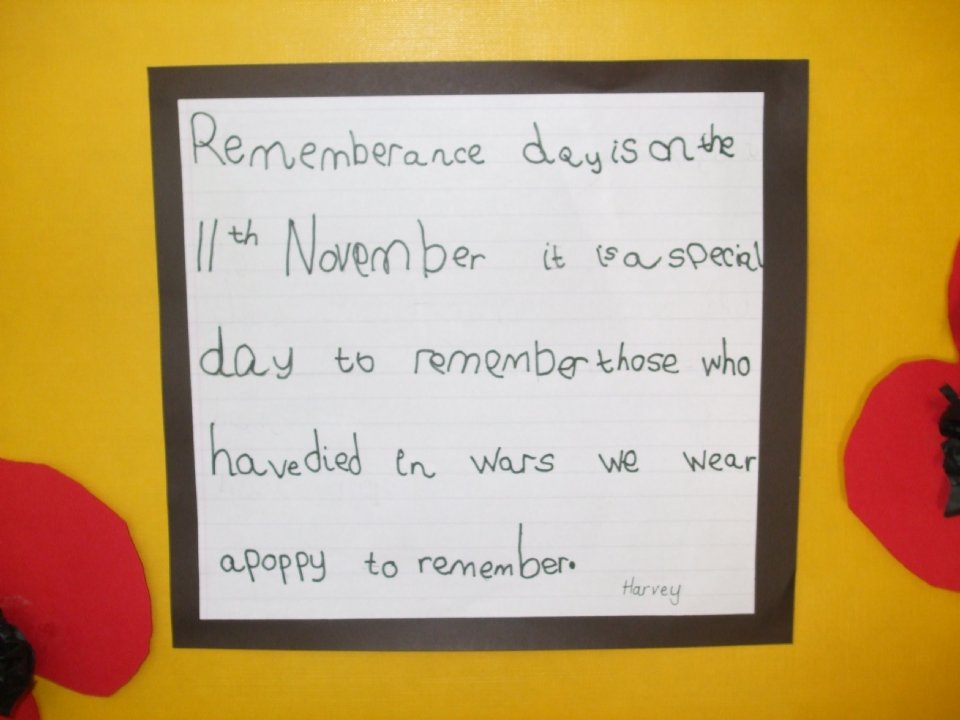 Rememberance day is on the
11th November it is a special
day to remember those who
have died in wars we wear
a poppy to remember.
Harvey